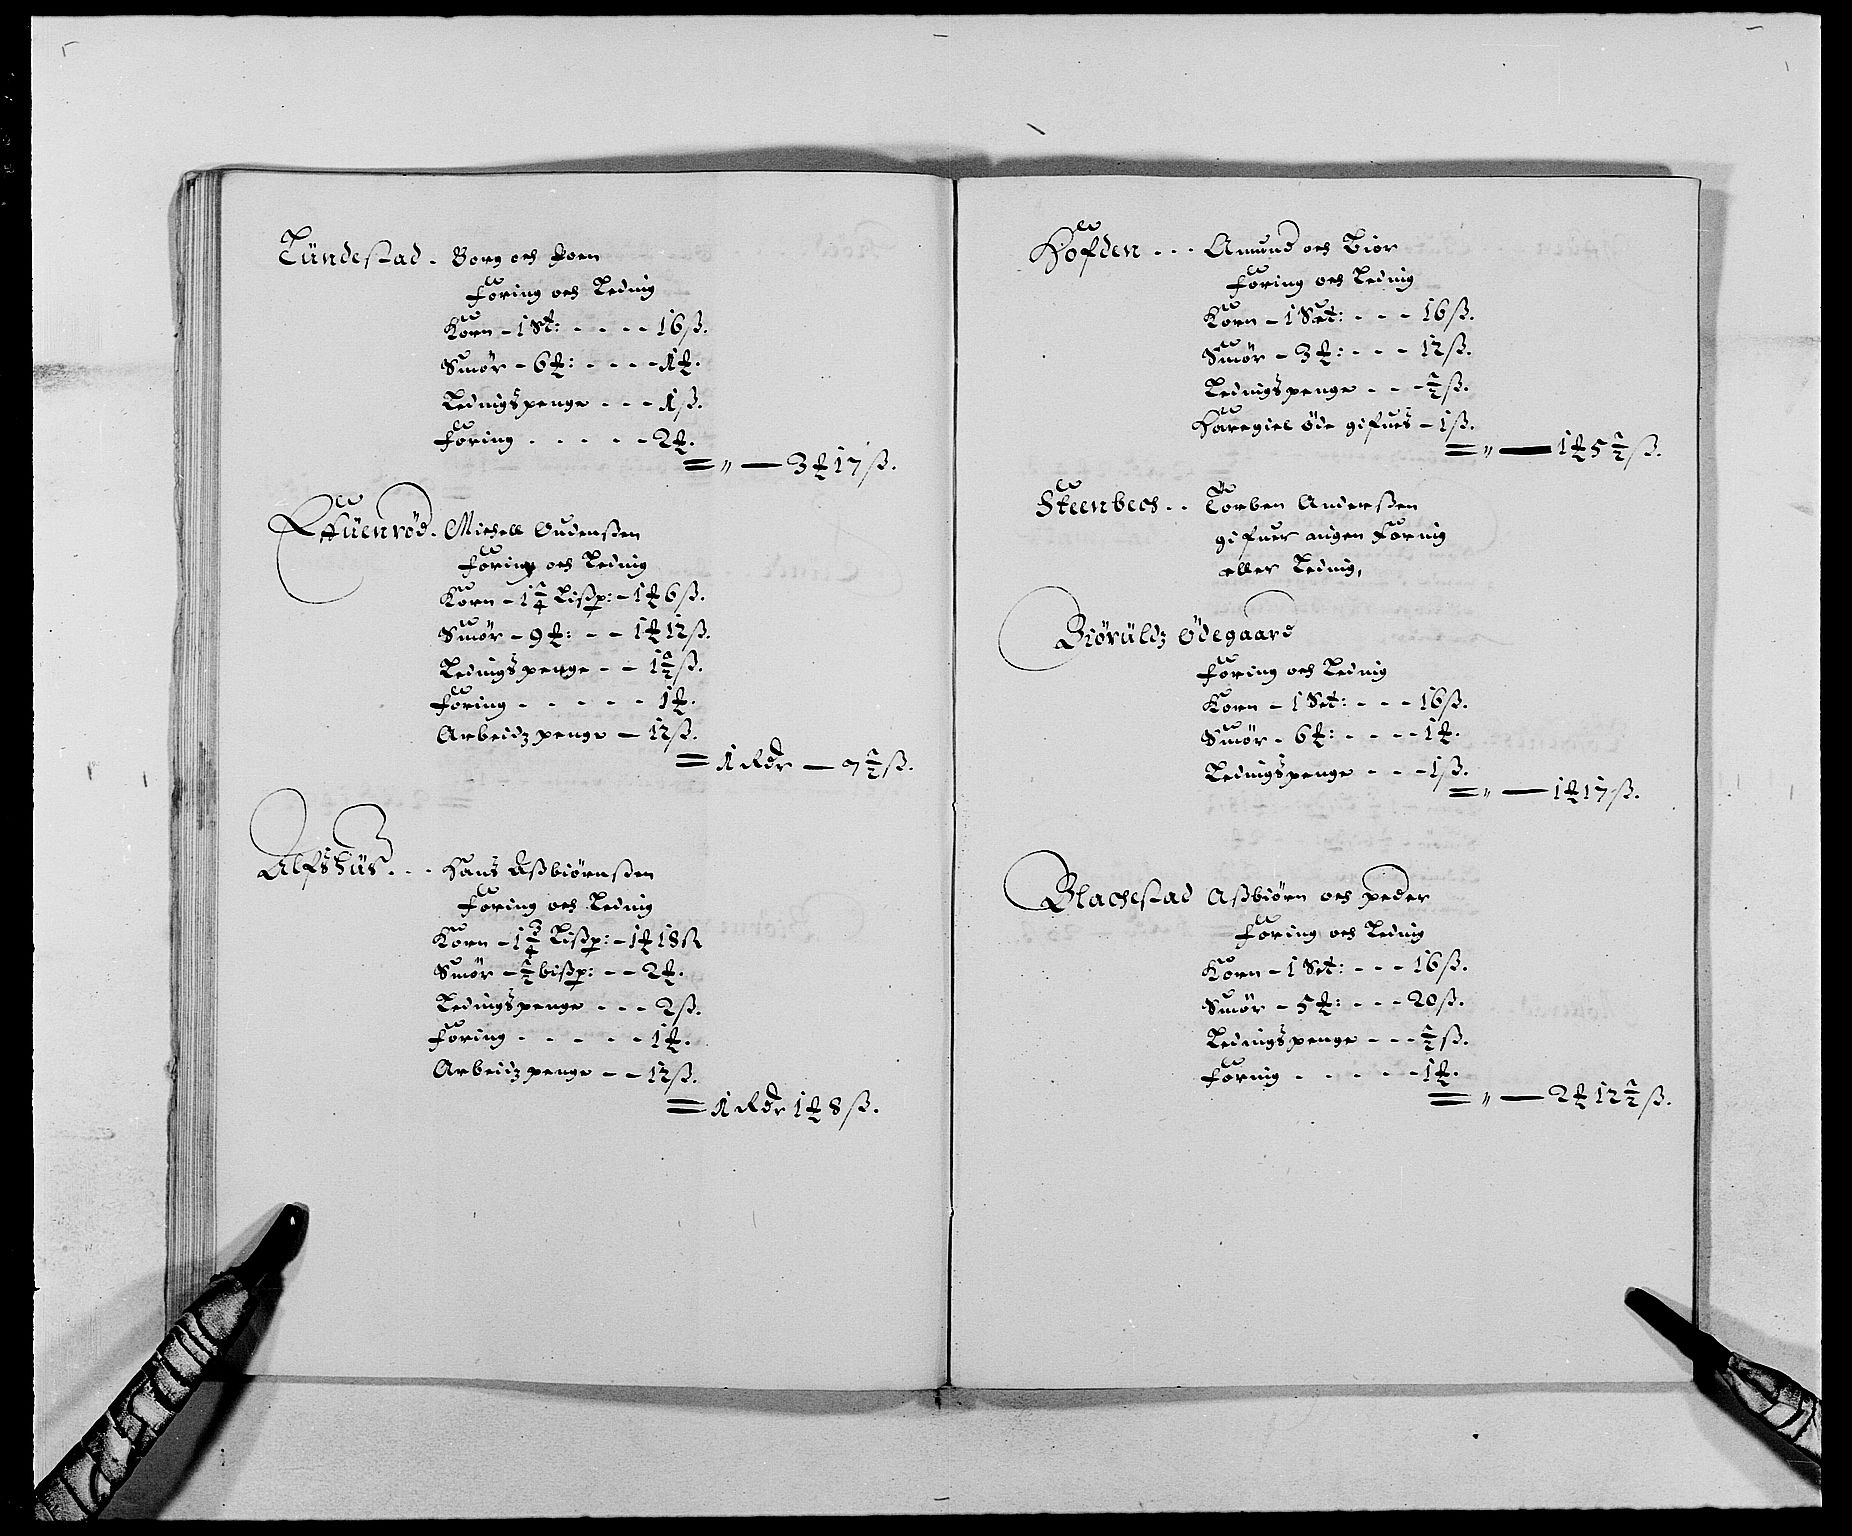 Tündestad. Borg och Joen
Foring och Leding
Korn - 1 St: - - - - 16 ß.
Smör - 6 ℔: - - - - 1 ℔.
Ledingspenge - - - 1 ß.
Foring - - - - - 2 ℔.
= " — 3 ℔ 17 ß.
Effüenröd. Michell Oudensßen
Foring och Leding
Korn - 1 1/4 Lißp: - 1 ℔ 6 ß.
Smör - 9 ℔: - - 1 ℔ 12 ß.
Ledingspenge - - 1 1/2 ß.
Foring - - - - - 1 ℔.
Arbeidzpenge — 12 ß.
= 1 Rdr — 7 1/2 ß.
Alfshüs. - - Hans Aßbiörnsßen
Foring och Leding
Korn - 1 3/4 Lißp: - 1 ℔ 18 ß
Smör - 1/2 bißp: - - 2 ℔.
Ledingspenge - - - 2 ß.
Foring - - - - - 1 ℔.
Arbeidzpenge - - 12 ß.
= 1 Rdr 1 ℔ 8 ß.
Hofden - - - Amund och Biör
Foring och Leding
Korn - 1 Set: - - - 16 ß.
Smör - 3 ℔: - - - 12 ß.
Ledingspenge - - - 1/2 ß.
öde gifues - 1 ß.
= " — 1 ℔ 5 1/2 ß.
Steenbech - - Torben Andersßen
gifuer ingen Foring
eller Leding,
Biörüldz Ödegaard
Foring och Leding
Korn - 1 Set: - - - 16 ß.
Smör - 6 ℔: - - - - 1 ℔.
Ledingspenge - - - 1 ß.
= " — 1 ℔ 17 ß.
Blachestad Aßbiörn och peder
Foring och Leding
Korn - 1 Set: - - - 16 ß.
Smör - 5 ℔: - - - 20 ß.
Ledingspenge - - - 1/2 ß.
Foring - - - - - 1 ℔.
= " — 2 ℔ 12 1/2 ß.